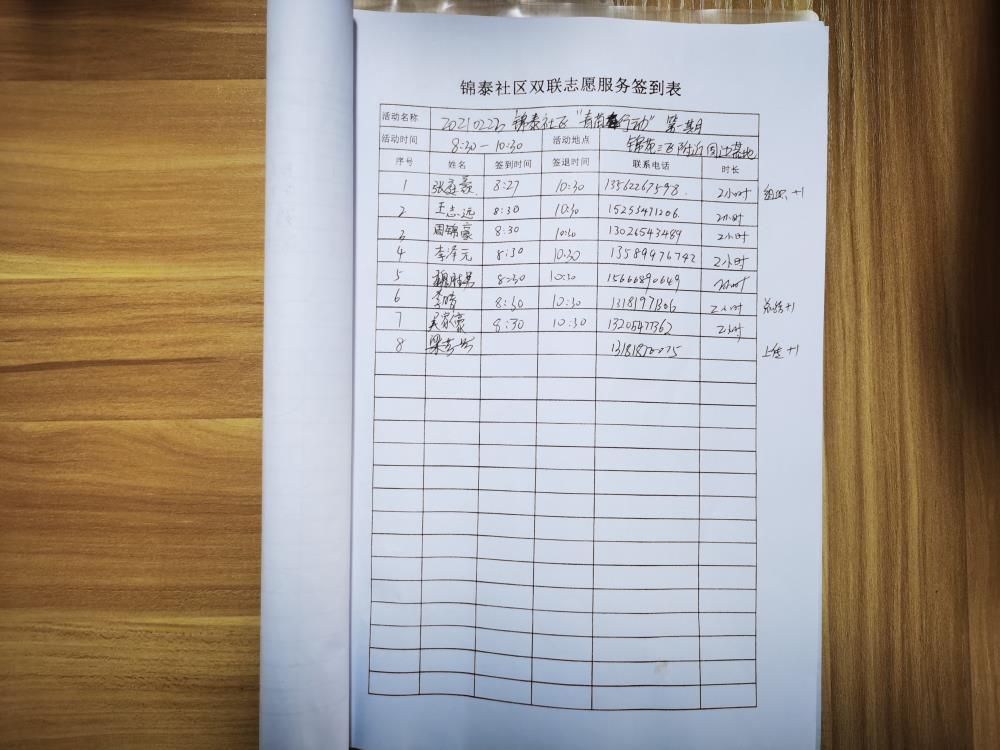 锦泰社区双联志愿服务签到表
活动名称 20210222 锦泰社区 "青苗行动" 第一期
活动时间 8:30－10:30 活动地点 锦苑三区附近周边基地
序号 姓名 签到时间 签退时间 联系电话 时长
1 张庭豪 8:27 10:30 13562267598 2小时 组织+1
2 王志远 8:30 10:30 15253471206 2小时
3 周锦豪 8:30 10:30 13026543489 2小时
4 李泽元 8:30 10:30 13589976742 2小时
5 8:30 10:30 15666890649 2小时
6 李晴 8:30 10:30 13181971306 2小时 总结+1
7 吴家豪 8:30 10:30 13205477362 2小时
8 上传+1